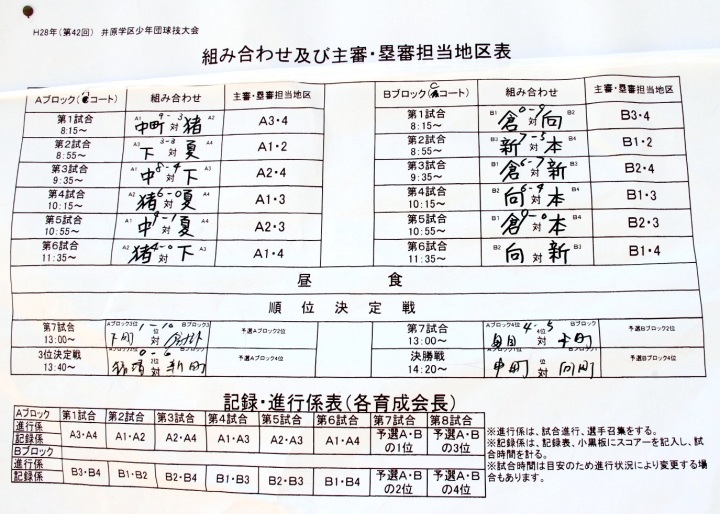 H28年(第42回) 井原学区少年団球技大会
組み合わせ及び主審・塁審担当地区表
Aブロック( コート) 組み合わせ 主審・塁審担当地区
第1試合 8:15～ A1 中町 9-3 対 猪 A2 A3・4
第2試合 8:55～ A3 下 3-3 対 夏 A4 A1・2
第3試合 9:35～ A1 中 8-4 対 下 A3 A2・4
第4試合 10:15～ A2 猪 6-0 対 夏 A4 A1・3
第5試合 10:55～ A1 中 9-1 対 夏 A4 A2・3
第6試合 11:35～ A2 猪 4-0 対 下 A3 A1・4
Bブロック(C コート) 組み合わせ 主審・塁審担当地区
第1試合 8:15～ B1 倉 0-9 対 向 B2 B3・4
第2試合 8:55～ B3 新 7-5 対 本 B4 B1・2
第3試合 9:35～ B1 倉 6-7 対 新 B3 B2・4
第4試合 10:15～ B2 向 6-4 対 本 B4 B1・3
第5試合 10:55～ B1 倉 9-0 対 本 B4 B2・3
第6試合 11:35～ B2 向 対 新 B3 B1・4
昼 食
順 位 決 定 戦
第7試合 13:00～ Aブロック3位 下町 1-10 対 Bブロック3 予選Aブロック2位
第7試合 13:00～ Aブロック4位 4-5 対 Bブロック4位 本町 予選Bブロック2位
3位決定戦 13:40～ 0-6 対 新町 予選Aブロック4位
決勝戦 14:20～ 中町 対 向町
記録・進行係表(各育成会長)
Aブロック 第1試合 第2試合 第3試合 第4試合 第5試合 第6試合 第7試合 第8試合
進行係 記録係 A3・A4 A1・A2 A2・A4 A1・A3 A2・A3 A1・A4 予選A・Bの1位 予選A・Bの3位
Bブロック
進行係 記録係 B3・B4 B1・B2 B2・B4 B1・B3 B2・B3 B1・B4 予選A・Bの2位 予選A・Bの4位
※進行係は、試合進行、選手召集をする。
※記録係は、記録表、小黒板にスコアーを記入し、試
合時間を計る。
※試合時間は目安のため進行状況により変更する場
合もあります。